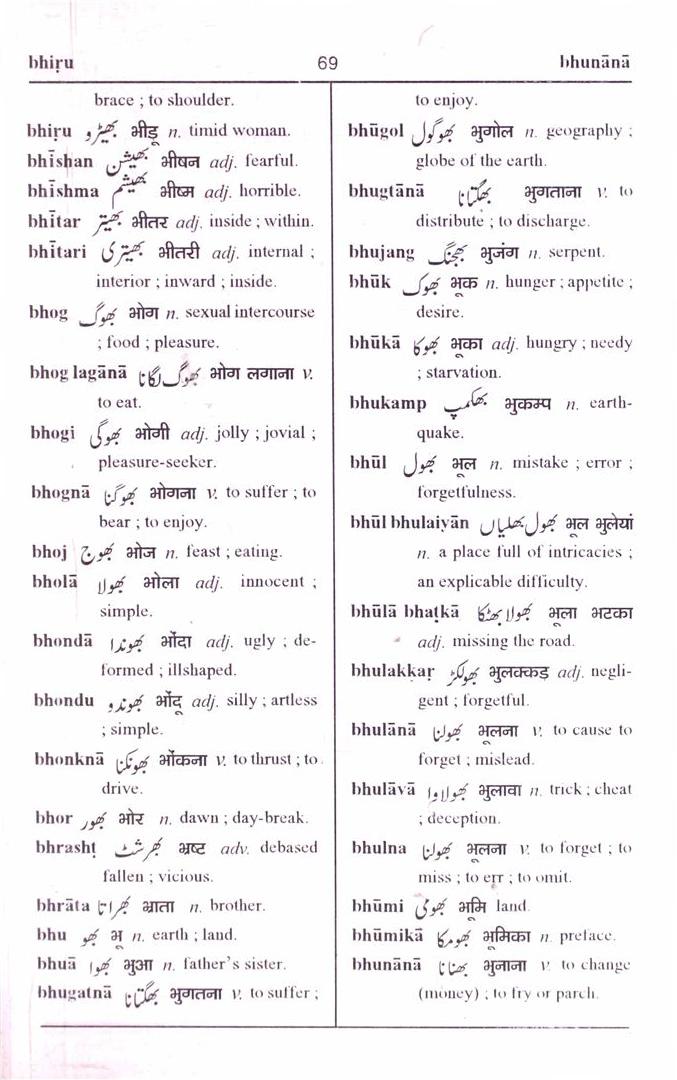 bhiṛu 69 bhunānā
brace ; to shoulder.
bhiṛu بھیڑو भीडू n. timid woman.
bhīshan بھیشن भीषन adj. fearful.
bhīshma بھیشم भीष्म adj. horrible.
bhītar بھیتر भीतर adj. inside ; within.
bhītari بھیتری भीतरी adj. internal ;
interior ; inward ; inside.
bhog بھوگ भोग n. sexual intercourse
; food ; pleasure.
bhog lagānā بھوگ لگانا भोग लगाना v.
to eat.
bhogi بھوگی भोगी adj. jolly ; jovial ;
pleasure-seeker.
bhognā بھوگنا भोगना v. to suffer ; to
bear ; to enjoy.
bhoj بھوج भोज n. feast ; eating.
bholā بھولا भोला adj. innocent ;
simple.
bhondā بھوندا भोंदा adj. ugly ; de-
formed ; illshaped.
bhondu بھوندو भोंदू adj. silly ; artless
; simple.
bhonknā بھونکنا भोंकना v. to thrust ; to
drive.
bhor بھور भोर n. dawn ; day-break.
bhrashṭ بھرشٹ भ्रष्ट adv. debased
fallen ; vicious.
bhrāta بھراتا भ्राता n. brother.
bhu بھو भू n. earth ; land.
bhuā بھوا भुआ n. father's sister.
bhugatnā بھگتنا भुगतना v. to suffer ;
to enjoy.
bhūgol بھوگول भुगोल n. geography ;
globe of the earth.
bhugtānā بھگتانا भुगताना v. to
distribute ; to discharge.
bhujang بھجنگ भुजंग n. serpent.
bhūk بھوک भूक n. hunger ; appetite ;
desire.
bhūkā بھوکا भूका adj. hungry ; needy
; starvation.
bhukamp بھکمپ भुकम्प n. earth-
quake.
bhūl بھول भूल n. mistake ; error ;
forgetfulness.
bhūl bhulaiyān بھول بھلیاں भूल भुलेयां
n. a place full of intricacies ;
an explicable difficulty.
bhūlā bhaṭkā بھولا بھٹکا भूला भटका
adj. missing the road.
bhulakkaṛ بھولکڑ भुलक्कड़ adj. negli-
gent ; forgetful.
bhulānā بھولنا भूलना v. to cause to
forget ; mislead.
bhulāvā بھولاوا भुलावा n. trick ; cheat
; deception.
bhulna بھولنا भूलना v. to forget ; to
miss ; to err ; to omit.
bhūmi بھومی भूमि land.
bhūmikā بھومکا भूमिका n. preface.
bhunānā بھنانا भुनाना v. to change
(money) ; to fry or parch.